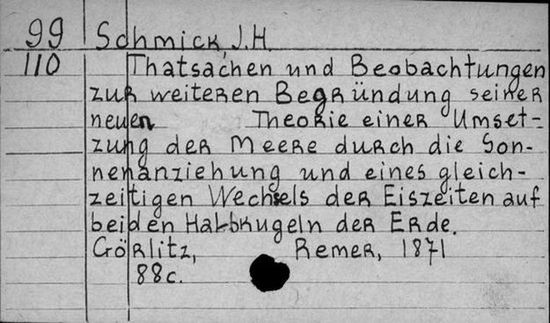 99 Schmick, J.H.
110 Thatsachen und Beobachtungen
zur weiteren Begründung seiner
neuen Theorie einer Umset-
zung der Meere durch die Son-
nenanziehung und eines gleich-
zeitigen Wechsels der Eiszeiten auf
beiden Halbkugeln der Erde.
Görlitz, Remer, 1871
88c.